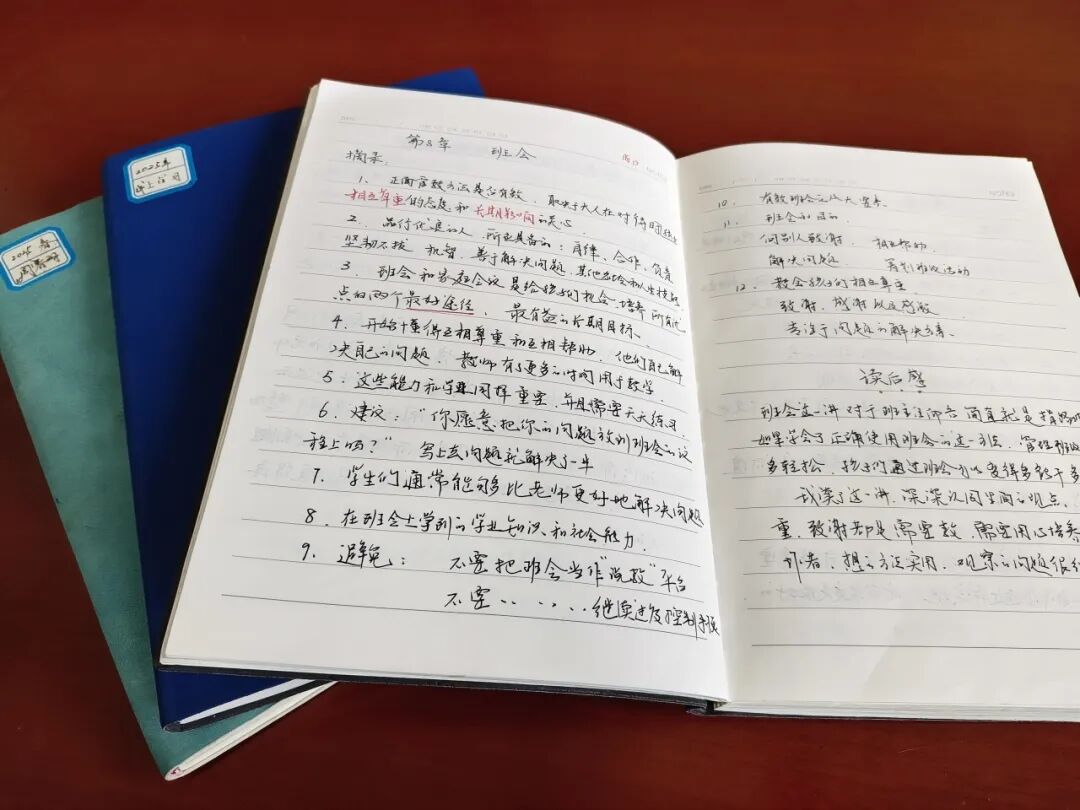 2025年
2025 春
第8章 班会
摘录:
1. 正面管教方法是否有效,取决于大人在对待时
相互尊重的态度和长期影响的关心
2. 品行优良的人,所应具备的:自律、合作、负责
坚韧不拔 机智、善于解决问题,其他社会和人生技能
3. 班会和家庭会议是给孩子们机会、培养所有优
点的两个最好途径, 最有益的长期目标.
4. 开始懂得互相尊重和互相帮助,他们自己解
决自己的问题,教师有了更多的时间用于教学.
5. 这些能力和学业同样重要,并且需要天天练习.
6. 建议:“你愿意把你的问题放到班会的议
程上吗?” 马上去问题就解决了一半
7. 学生们通常能够比老师更好地解决问题
8. 在班会上学到的学业知识、和社会能力.
9. 避免: 不要把班会当作“说教”平台
不要......继续过度控制手段
10. 有效班会的八大要素.
11. 班会的目的.
向别人致谢, 相互帮助
解决问题 筹划班级活动
12. 教会孩子们相互尊重
致谢,感谢以及感激
专注于问题的解决方案.
读后感
班会这一讲对于班主任而言简直就是指路明
如果学会了正确使用班会的这一方法,管理班级
多轻松,孩子们通过班会可以变得多能干多
我读了这一讲,深深认同里面的观点,
重,致谢都是需要教,需要用心培养
作者,想的方法实用,观察的问题很